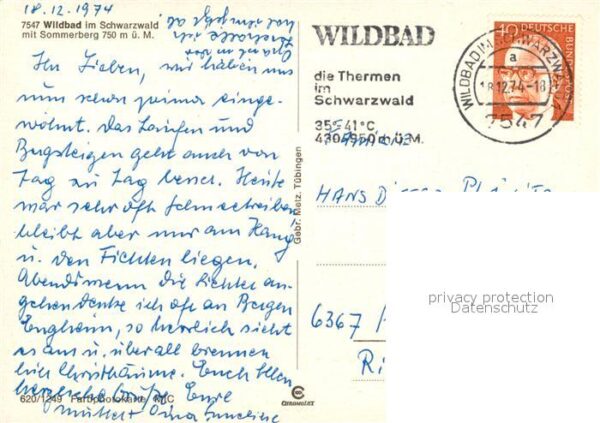 18.12.1974
7547 Wildbad im Schwarzwald
mit Sommerberg 750 m ü. M.
Ihr Lieben, wir haben uns
nun schon prima einge-
wöhnt. Das Laufen und
Bergsteigen geht auch von
Tag zu Tag besser. Heute
war sehr oft Schneetreiben,
bleibt aber nur am Hang
u. den Fichten liegen.
Abends wenn die Lichter an-
gehen denke ich oft an Bergen
Enkheim, so herrlich sieht
es aus u. überall brennen
die Christbäume. Euch Allen
herzliche Grüße Eure
Mutter Oma
620/1249 Farbphotokarte MC
Gebr. Metz, Tübingen
CHROMOLUX
WILDBAD
die Thermen
im
Schwarzwald
35-41°C
430-950 m ü.M.
40 DEUTSCHE BUNDESPOST
WILDBAD IM SCHWARZWALD
a
18.12.74-18
7547
HANS
6367
privacy protection
Datenschutz